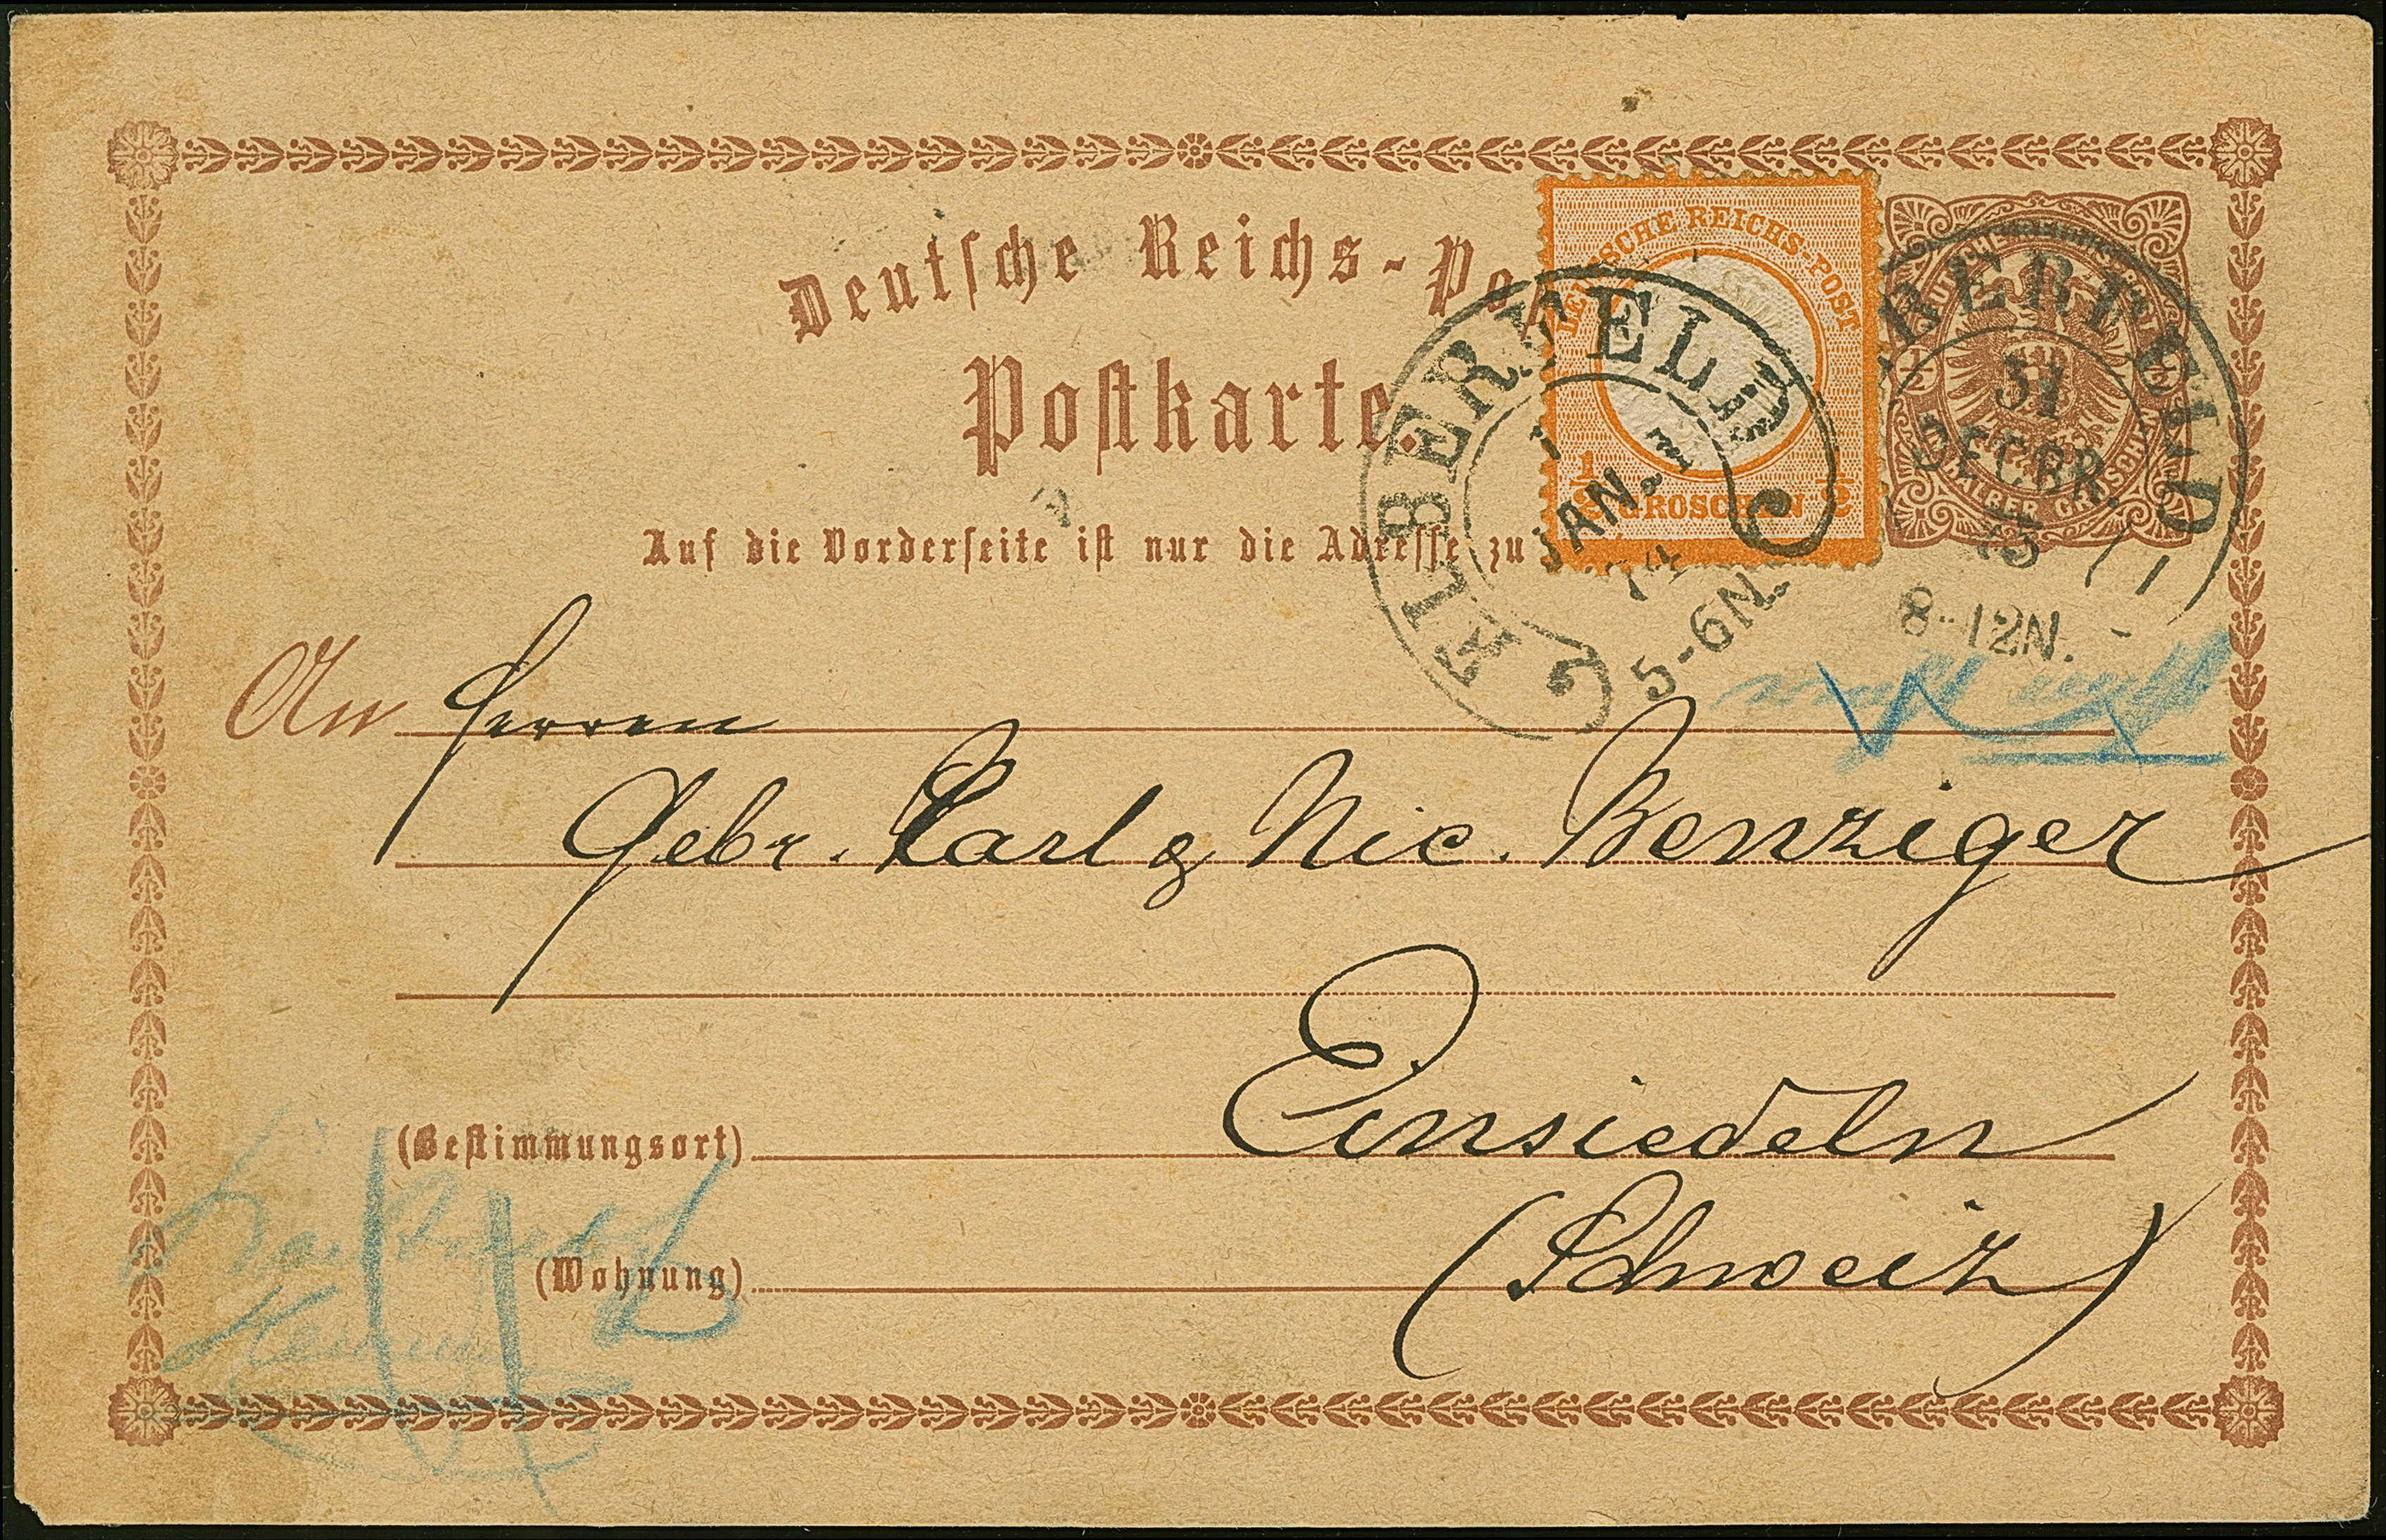 Deutsche Reichs-Pos
Postkarte.
DEUTSCHE REICHS-POST
1/2 GROSCHEN 1/2
EIN HALBER GROSCHEN
ELBERFELD
1
JAN.
74
5-6N.
ELBERFELD
31
DECBR.
73
8-12N.
Auf die Vorderseite ist nur die Adresse zu
An Herren
Gebr. Carl & Nic. Benziger
(Bestimmungsort) Einsiedeln
(Wohnung) (Schweiz)